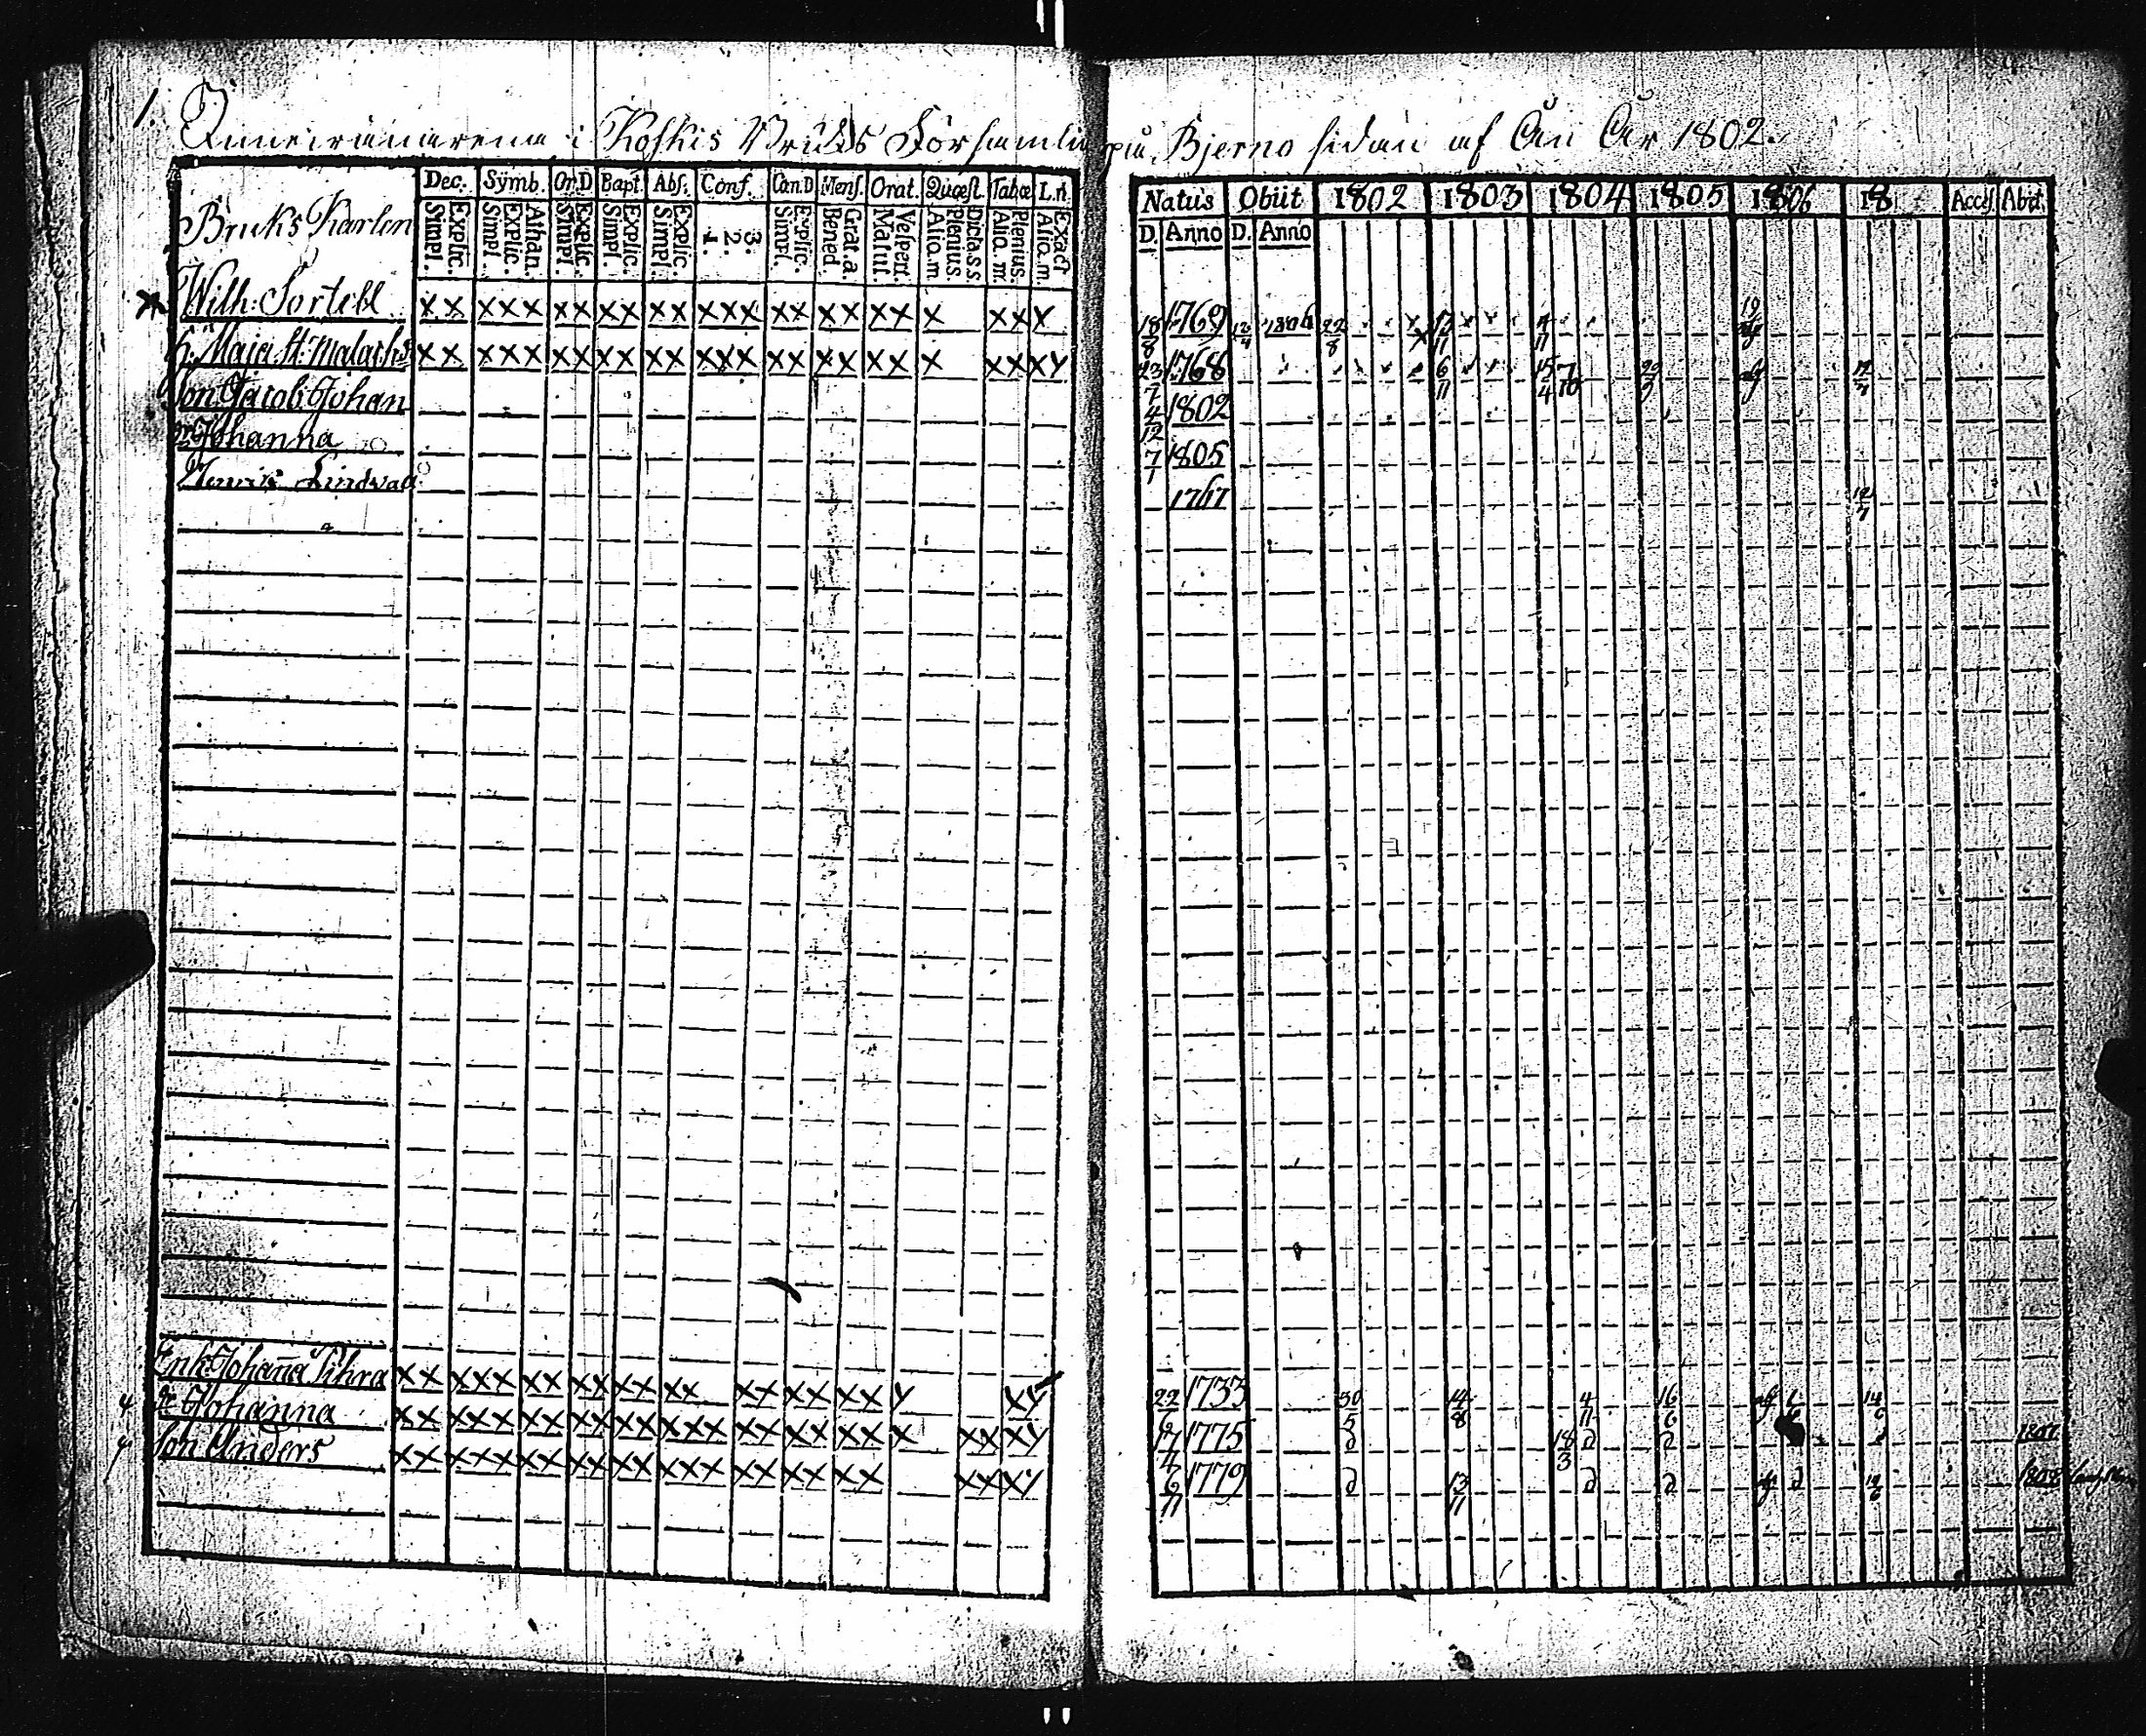 1. Koskis Bruks Församling på Bjerno sidan af Ån År 1802.
Dec. Symb. Or.D Bapt. Abs. Conf. Can.D Mens. Orat. Quæst. Tabæ L.n. Natus Obiit 1802 1803 1804 1805 1806 18 Access. Abit.
Bruks Karlen Simpl. Explic. Simpl. Explic. Athan. Simpl. Explic. Simpl. Explic. Simpl. Explic. 1. 2. 3. Simpl. Explic. Bened. Grat.a. Matut. Vespert. Alio.m. Plenius. Dicta.s.s. Alio.m. Plenius. Alio.m. Exact D. Anno D. Anno
Wilh: Sortell x x x x x x x x x x x x x x x x x x x x x x x y 18/8 1769 1806 22/8
H: Maja x x x x x x x x x x x x x x x x x x x x x x x x y 23/7 1768 6/11 15/4 7/10
Son Jacob Johan 4/12 1802
Dr Johanna 7/1 1805
Henric Lindvall 1767
Enk: Johaña x x x x x x x x x x x x x x x x x x x y x y 22/6 1733 30/5 14/8 4/11 16/6 14/6
4 Dr Johanna x x x x x x x x x x x x x x x x x x x x x x x x y 17/4 1775 18/3 1807
4 Son Anders x x x x x x x x x x x x x x x x x x x x x x x y 6/11 1779 13/11 1808